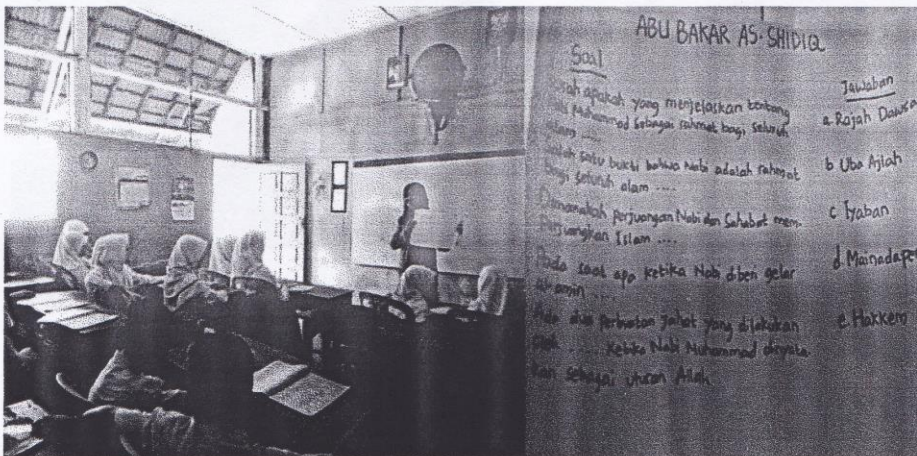 ABU BAKAR AS-SHIDIQ
Soal
apakah yang menjelaskan tentang
Nabi Muhammad sebagai rahmat bagi seluruh
alam ....
Salah satu bukti bahwa Nabi adalah rahmat
bagi seluruh alam ....
Dimanakah perjuangan Nabi dan Sahabat mem-
perjuangkan Islam ....
Pada saat apa ketika Nabi diberi gelar
al-amin ....
Ada dua perbuatan jahat yang dilakukan
..... ketika Nabi Muhammad dinyata
kan sebagai utusan Allah
Jawaban
a. Rajah Dawsa
b Uba Ajlah
c Iyaban
d. Mainadape
e. Hakkem